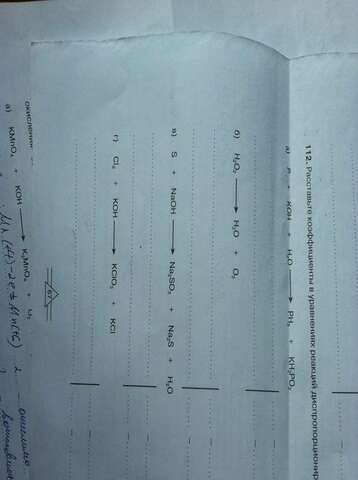 112. Расставьте коэффициенты в уравнениях реакций диспропорционир
а) P + KOH + H₂O → PH₃ + KH₂PO₂
б) H₂O₂ → H₂O + O₂
в) S + NaOH → Na₂SO₃ + Na₂S + H₂O
г) Cl₂ + KOH → KClO₃ + KCl
67
окислении
а) KMnO₄ + KOH → K₂MnO₄ +
Mn(+7) - 2e → Mn(+6) 2 -